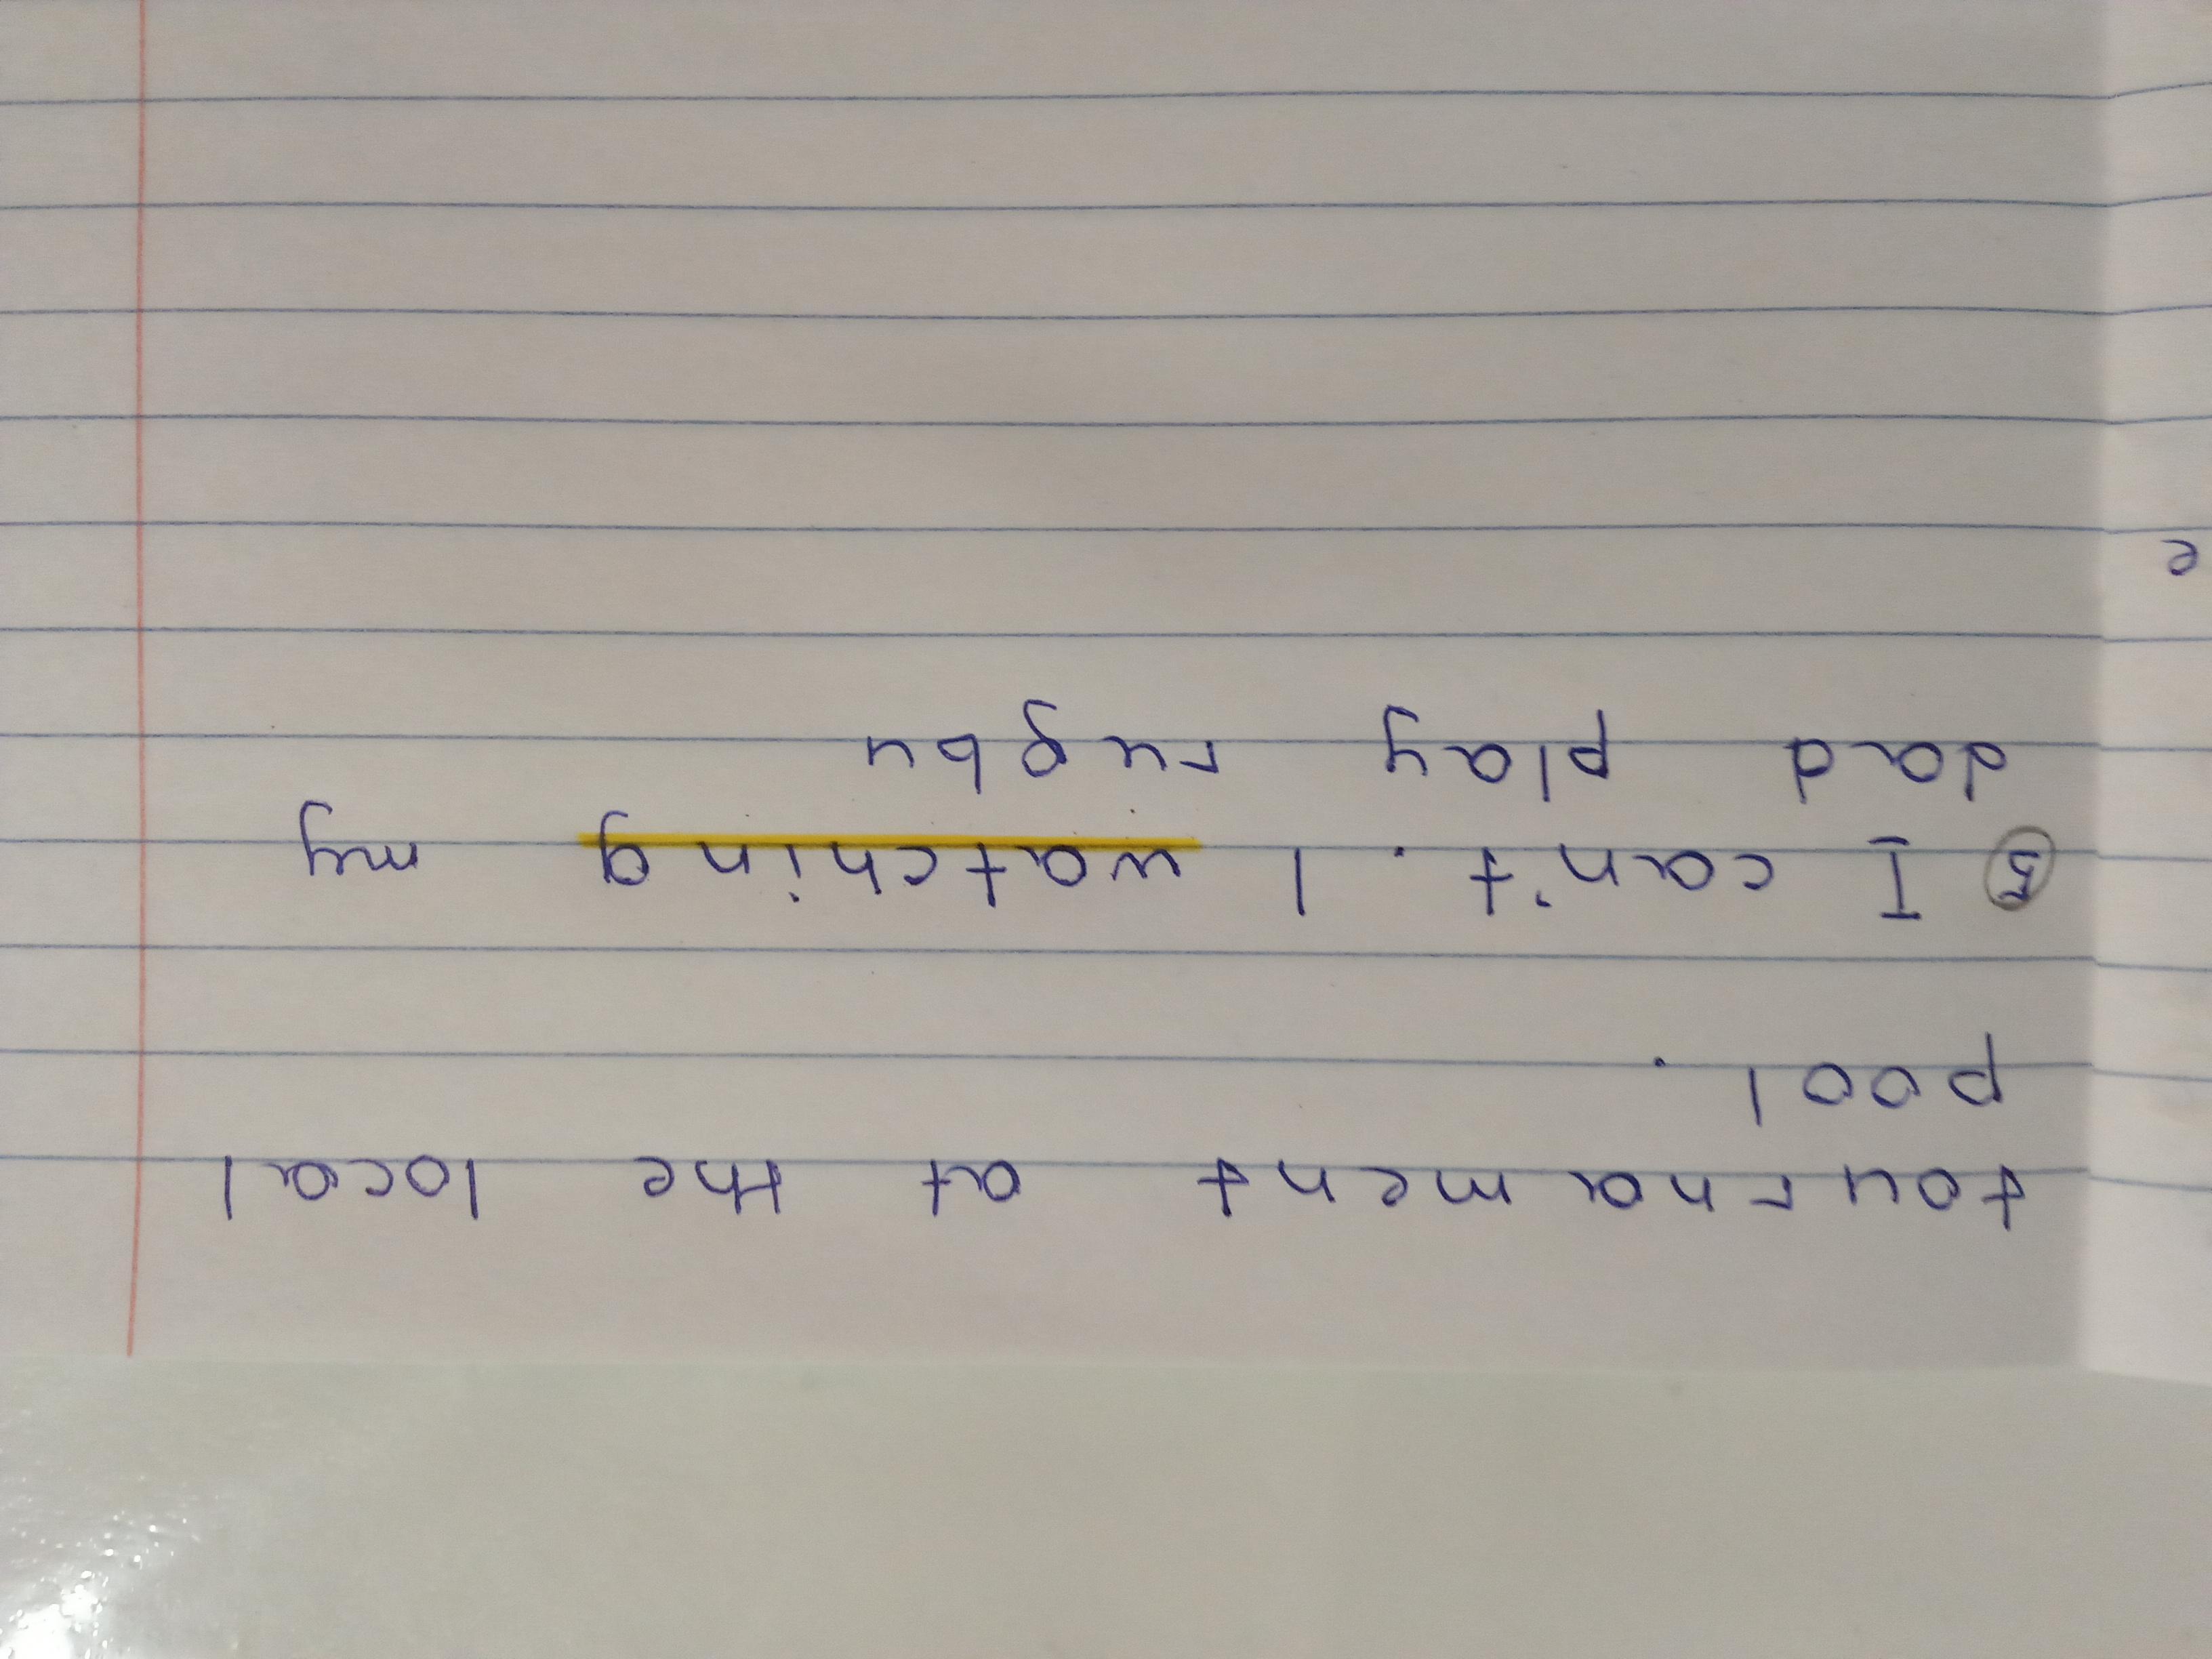 tournament at the local
pool.
⑤ I can't. I watching my
dad play rugbu
e